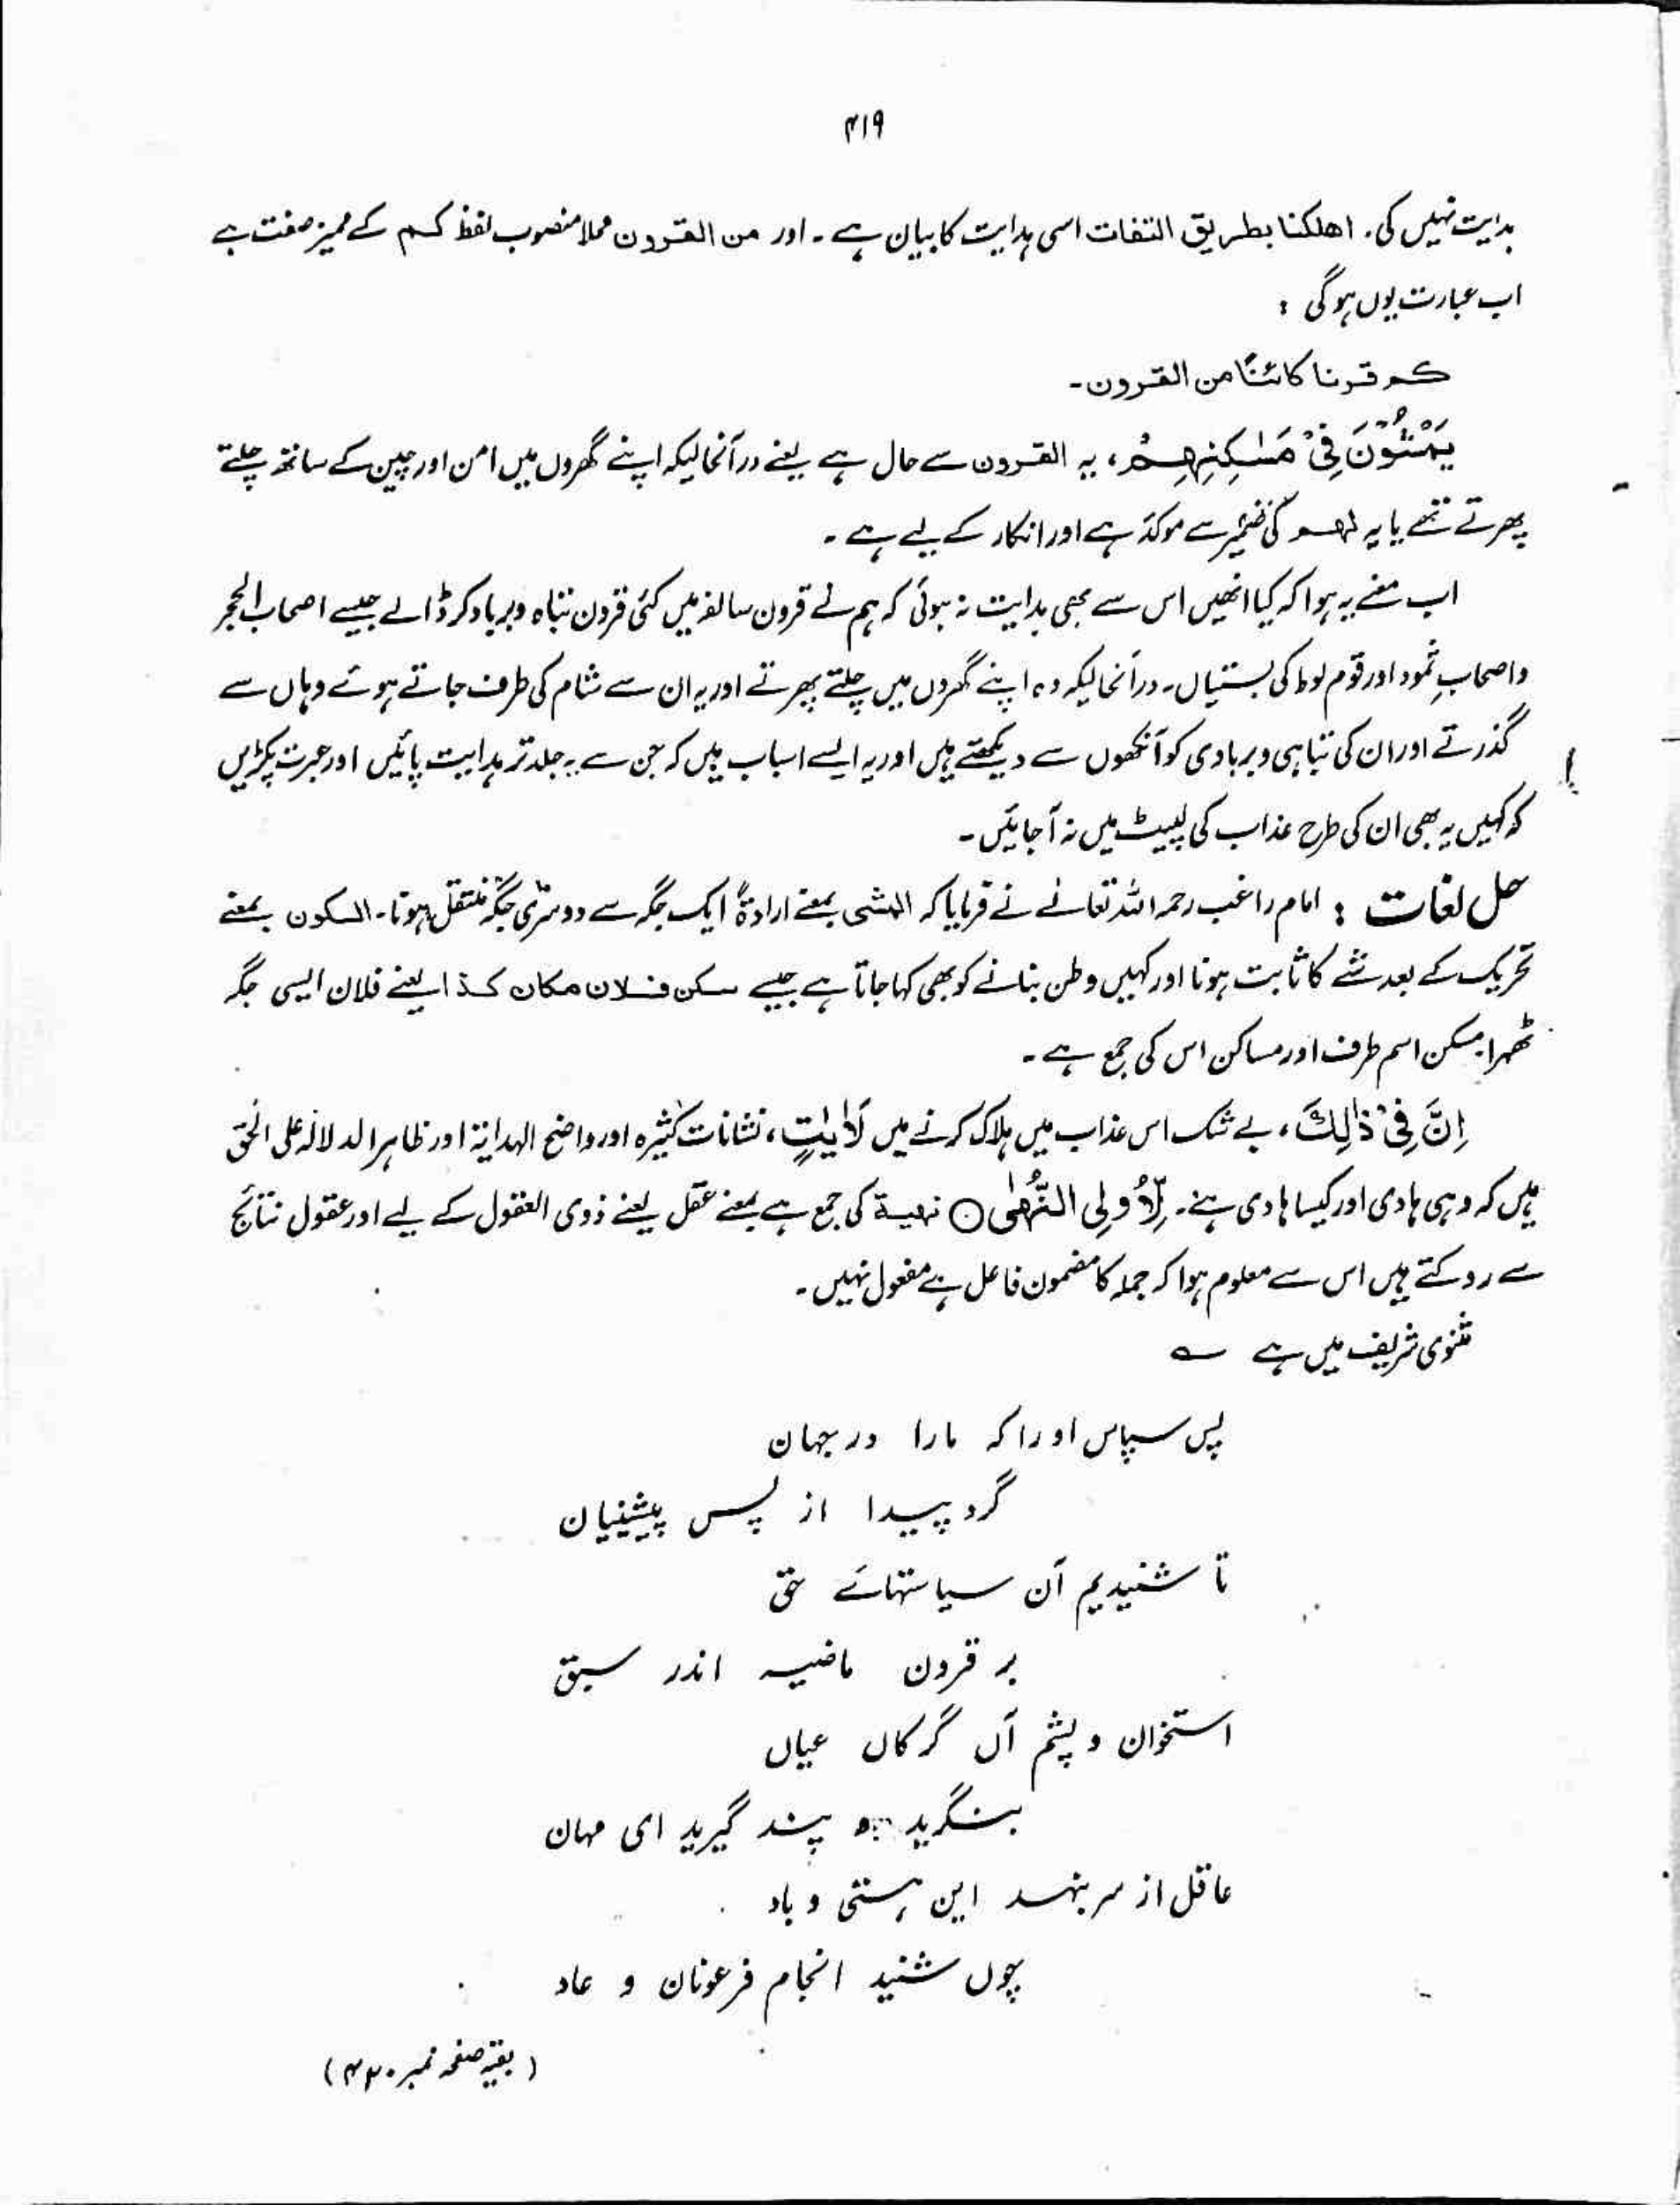 ۴۱۹
ہدایت نہیں کی۔ اھلکنا بطریق التفات اسی ہدایت کا بیان ہے۔ اور من القرون محلا منصوب لفظ کم کے ممیز صفت ہے
اب عبارت یوں ہوگی :
کم قرنا کائنًا من القرون۔
یَمْشُوْنَ فِیْ مَسٰکِنِهِمْ، یہ القرون سے حال ہے یعنے درآنحالیکہ اپنے گھروں میں امن اور چین کے ساتھ چلتے
پھرتے تھے یا یہ لھم کی ضمیر سے موکد ہے اور انکار کے لیے ہے۔
اب معنے یہ ہوا کہ کیا انھیں اس سے بھی ہدایت نہ ہوئی کہ ہم نے قرون سالفہ میں کئی قرون تباہ و برباد کر ڈالے جیسے اصحاب الحجر
و اصحابِ ثمود اور قوم لوط کی بستیاں۔ درآنحالیکہ وہ اپنے گھروں میں چلتے پھرتے اور یہ ان سے شام کی طرف جاتے ہوئے وہاں سے
گذرتے اور ان کی تباہی و بربادی کو آنکھوں سے دیکھتے ہیں اور یہ ایسے اسباب ہیں کہ جن سے یہ جلد تر ہدایت پائیں اور عبرت پکڑیں
کہ کہیں یہ بھی ان کی طرح عذاب کی لپیٹ میں نہ آجائیں۔
حل لغات : امام راغب رحمہ اللہ تعالٰے نے فرمایا کہ المشی بمعنے ارادۃً ایک جگہ سے دوسری جگہ منتقل ہونا۔ السکون بمعنے
تحریک کے بعد شے کا ثابت ہونا اور کہیں وطن بنانے کو بھی کہا جاتا ہے جیسے سکن فلان مکان کذا یعنے فلان ایسی جگہ
ٹھہرا۔ مسکن اسم ظرف اور مساکن اس کی جمع ہے۔
اِنَّ فِیْ ذٰلِكَ، بے شک اس عذاب میں ہلاک کرنے میں لَاٰیٰتٍ، نشانات کثیرہ اور واضح الہدایۃ اور ظاہر الدلالۃ علی الحق
ہیں کہ وہی ہادی اور کیسا ہادی ہے۔ لِّاُولِی النُّهٰی ○ نهیة کی جمع ہے بمعنے عقل یعنے ذوی العقول کے لیے اور عقول نتائج
سے روکتے ہیں اس سے معلوم ہوا کہ جملہ کا مضمون فاعل ہے مفعول نہیں۔
مثنوی شریف میں ہے ؎
پس سپاس او را کہ مارا در جہان
گرد پیدا از پس پیشینیان
تا شنیدیم آن سیاستہائے حق
بر قرون ماضیہ اندر سبق
استخوان و پشم آں گرکاں عیاں
بنگرید و پند گیرید ای مہان
عاقل از سر بنہد این ہستی و باد
چوں شنید انجام فرعونان و عاد
(بقیہ صفحہ نمبر ۴۲۰)